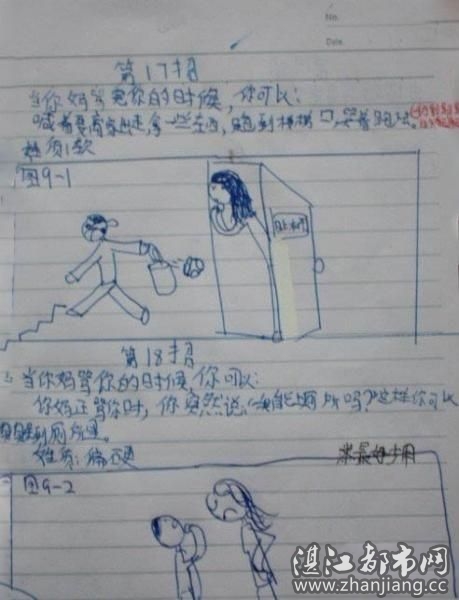 No.
Date.
第17招
当你妈骂你的时候，你可以：
喊着要离家出走，拿一些东西，跑到楼梯口，哭着跑
性质：软
图9-1
第18招
当你妈骂你的时候，你可以：
你妈正骂你时，你突然说："我能上厕所吗？"这样你可以
跑到厕所里。
性质：偏硬
图9-2
湛江都市网
www.zhanjiang.cc